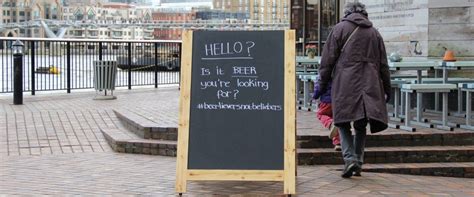 HELLO?
Is it BEER
you're looking
for?
#beerlieversnotbelibers